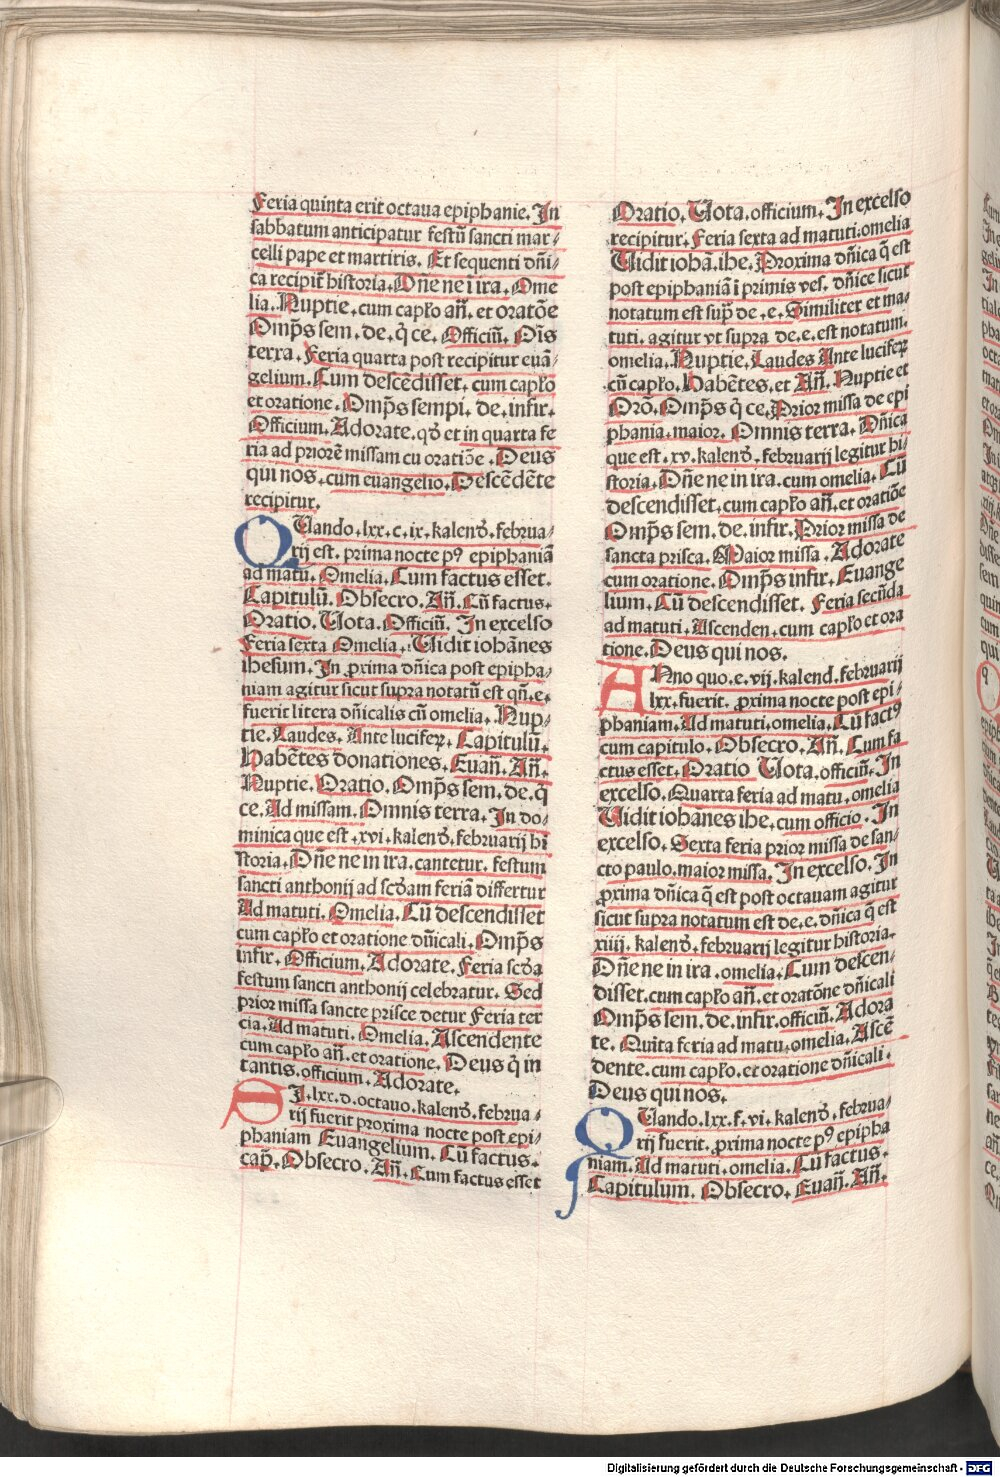 Feria quinta erit octaua epiphanie. In
sabbatum anticipatur festū sancti mar/
celli pape et martiris. Et sequenti dn̄i/
ca recipit̄ historia. Dn̄e ne ī ira. Ome
lia. Nuptie. cum capło an̄. et oratōe
Omp̄s sem. de. q̇ ce. Officiū. Oīs
terra. Feria quarta post recipitur euā/
gelium. Cum descēdisset. cum capło
et oratione. Omp̄s sempi. de. infir.
Officium. Adorate. qđ et in quarta fe
ria ad priorē missam cu oratiōe. Deus
qui nos. cum euangelio. Descēdēte
recipitur.
QUando. lxx. c. ix. kalenđ. februa/
rij est. prima nocte pꝰ epiphaniā
ad matu. Omelia. Cum factus esset.
Capitulū. Obsecro. An̄. Cū factus.
Oratio. Uota. Officiū. In excelso
Feria sexta Omelia. Uidit iohānes
ihesum. In ꝓxima dn̄ica post epipha/
niam agitur sicut supra notatū est qn̄. e.
fuerit litera dn̄icalis cū omelia. Nup/
tie. Laudes. Ante luciferꝝ. Capitulū.
Habētes donationes. Euan̄. An̄.
Nuptie. Oratio. Omp̄s sem. de. q̇
ce. Ad missam. Omnis terra. In do/
minica que est. xvi. kalenđ. februarij hi
storia. Dn̄e ne in ira. cantetur. festum
sancti anthonij ad scđam feriā differtur
Ad matuti. Omelia. Cū descendisset
cum capło et oratione dn̄icali. Omp̄s
infir. Officium. Adorate. Feria scđa
festum sancti anthonij celebratur. Sed
prior missa sancte prisce detur Feria ter
cia. Ad matuti. Omelia. Ascendente
cum capło an̄. et oratione. Deus q̇ in
tantis. officium. Adorate.
SI. lxx. d. octauo. kalenđ. februa/
rij fuerit proxima nocte post epi/
phaniam Euangelium. Cū factus.
cap̄. Obsecro. An̄. Cum factus esset
Oratio. Uota. officium. In excelso
recipitur. Feria sexta ad matuti. omelia
Uidit iohā. ihe. Proxima dn̄ica q̄ est
post epiphaniā ī primis ves. dn̄ice sicut
notatum est sup̄ de. e. Similiter et ma/
tuti. agitur vt supra de. e. est notatum.
omelia. Nuptie. Laudes Ante luciferꝝ
cū capło. Habētes. et An̄. Nuptie et
Orō. Omp̄s q̇ ce. Prior missa de epi
phania. maior. Omnis terra. Dn̄ica
que est. xv. kalenđ. februarij legitur hi/
storia. Dn̄e ne in ira. cum omelia. Cū
descendisset. cum capło an̄. et oratiōe
Omp̄s sem. de. infir. Prior missa de
sancta prisca. Maior missa. Adorate
cum oratione. Omp̄s infir. Euange
lium. Cū descendisset. Feria secūda
ad matuti. Ascenden. cum capło et ora
tione. Deus qui nos.
ANno quo. e. vij. kalend. februarij
lxx. fuerit. ꝓxima nocte post epi/
phaniam. Ad matuti. omelia. Cū factꝰ
cum capitulo. Obsecro. An̄. Cum fa
ctus esset. Oratio Uota. officiū. In
excelso. Quarta feria ad matu. omelia
Uidit iohānes ihe. cum officio. In
excelso. Sexta feria prior missa de san/
cto paulo. maior missa. In excelso. In
ꝓxima dn̄ica q̄ est post octauam agitur
sicut supra notatum est de. e. dn̄ica q̄ est
xiiij. kalenđ. februarij legitur historia.
Dn̄e ne in ira. omelia. Cum descen/
disset. cum capło an̄. et oratōne dn̄icali
Omp̄s sem. de. infir. officiū. Adora
te. Quīta feria ad matu. omelia. Ascē
dente. cum capło. et oratione dn̄icali.
Deus qui nos.
QUando. lxx. f. vi. kalenđ. februa/
rij fuerit. ꝓxima nocte pꝰ epipha
niam. Ad matuti. omelia. Cū factus.
Capitulum. Obsecro. Euan̄. An̄.
Digitalisierung gefördert durch die Deutsche Forschungsgemeinschaft - DFG